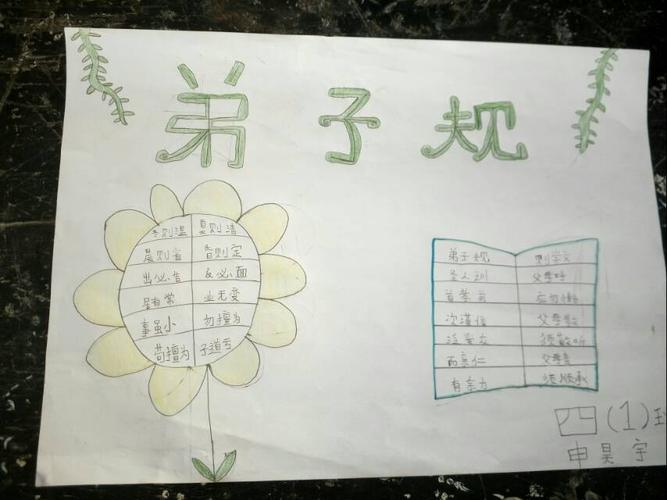 弟子规
冬则温 夏则清
晨则省 昏则定
出必告 反必面
居有常 业无变
事虽小 勿擅为
苟擅为 子道亏
弟子规 则学文
圣人训 父母呼
首孝弟 应勿缓
次谨信 父母教
泛爱众 须敬听
而亲仁 父母责
有余力 须顺承
四(1)班
申昊宇